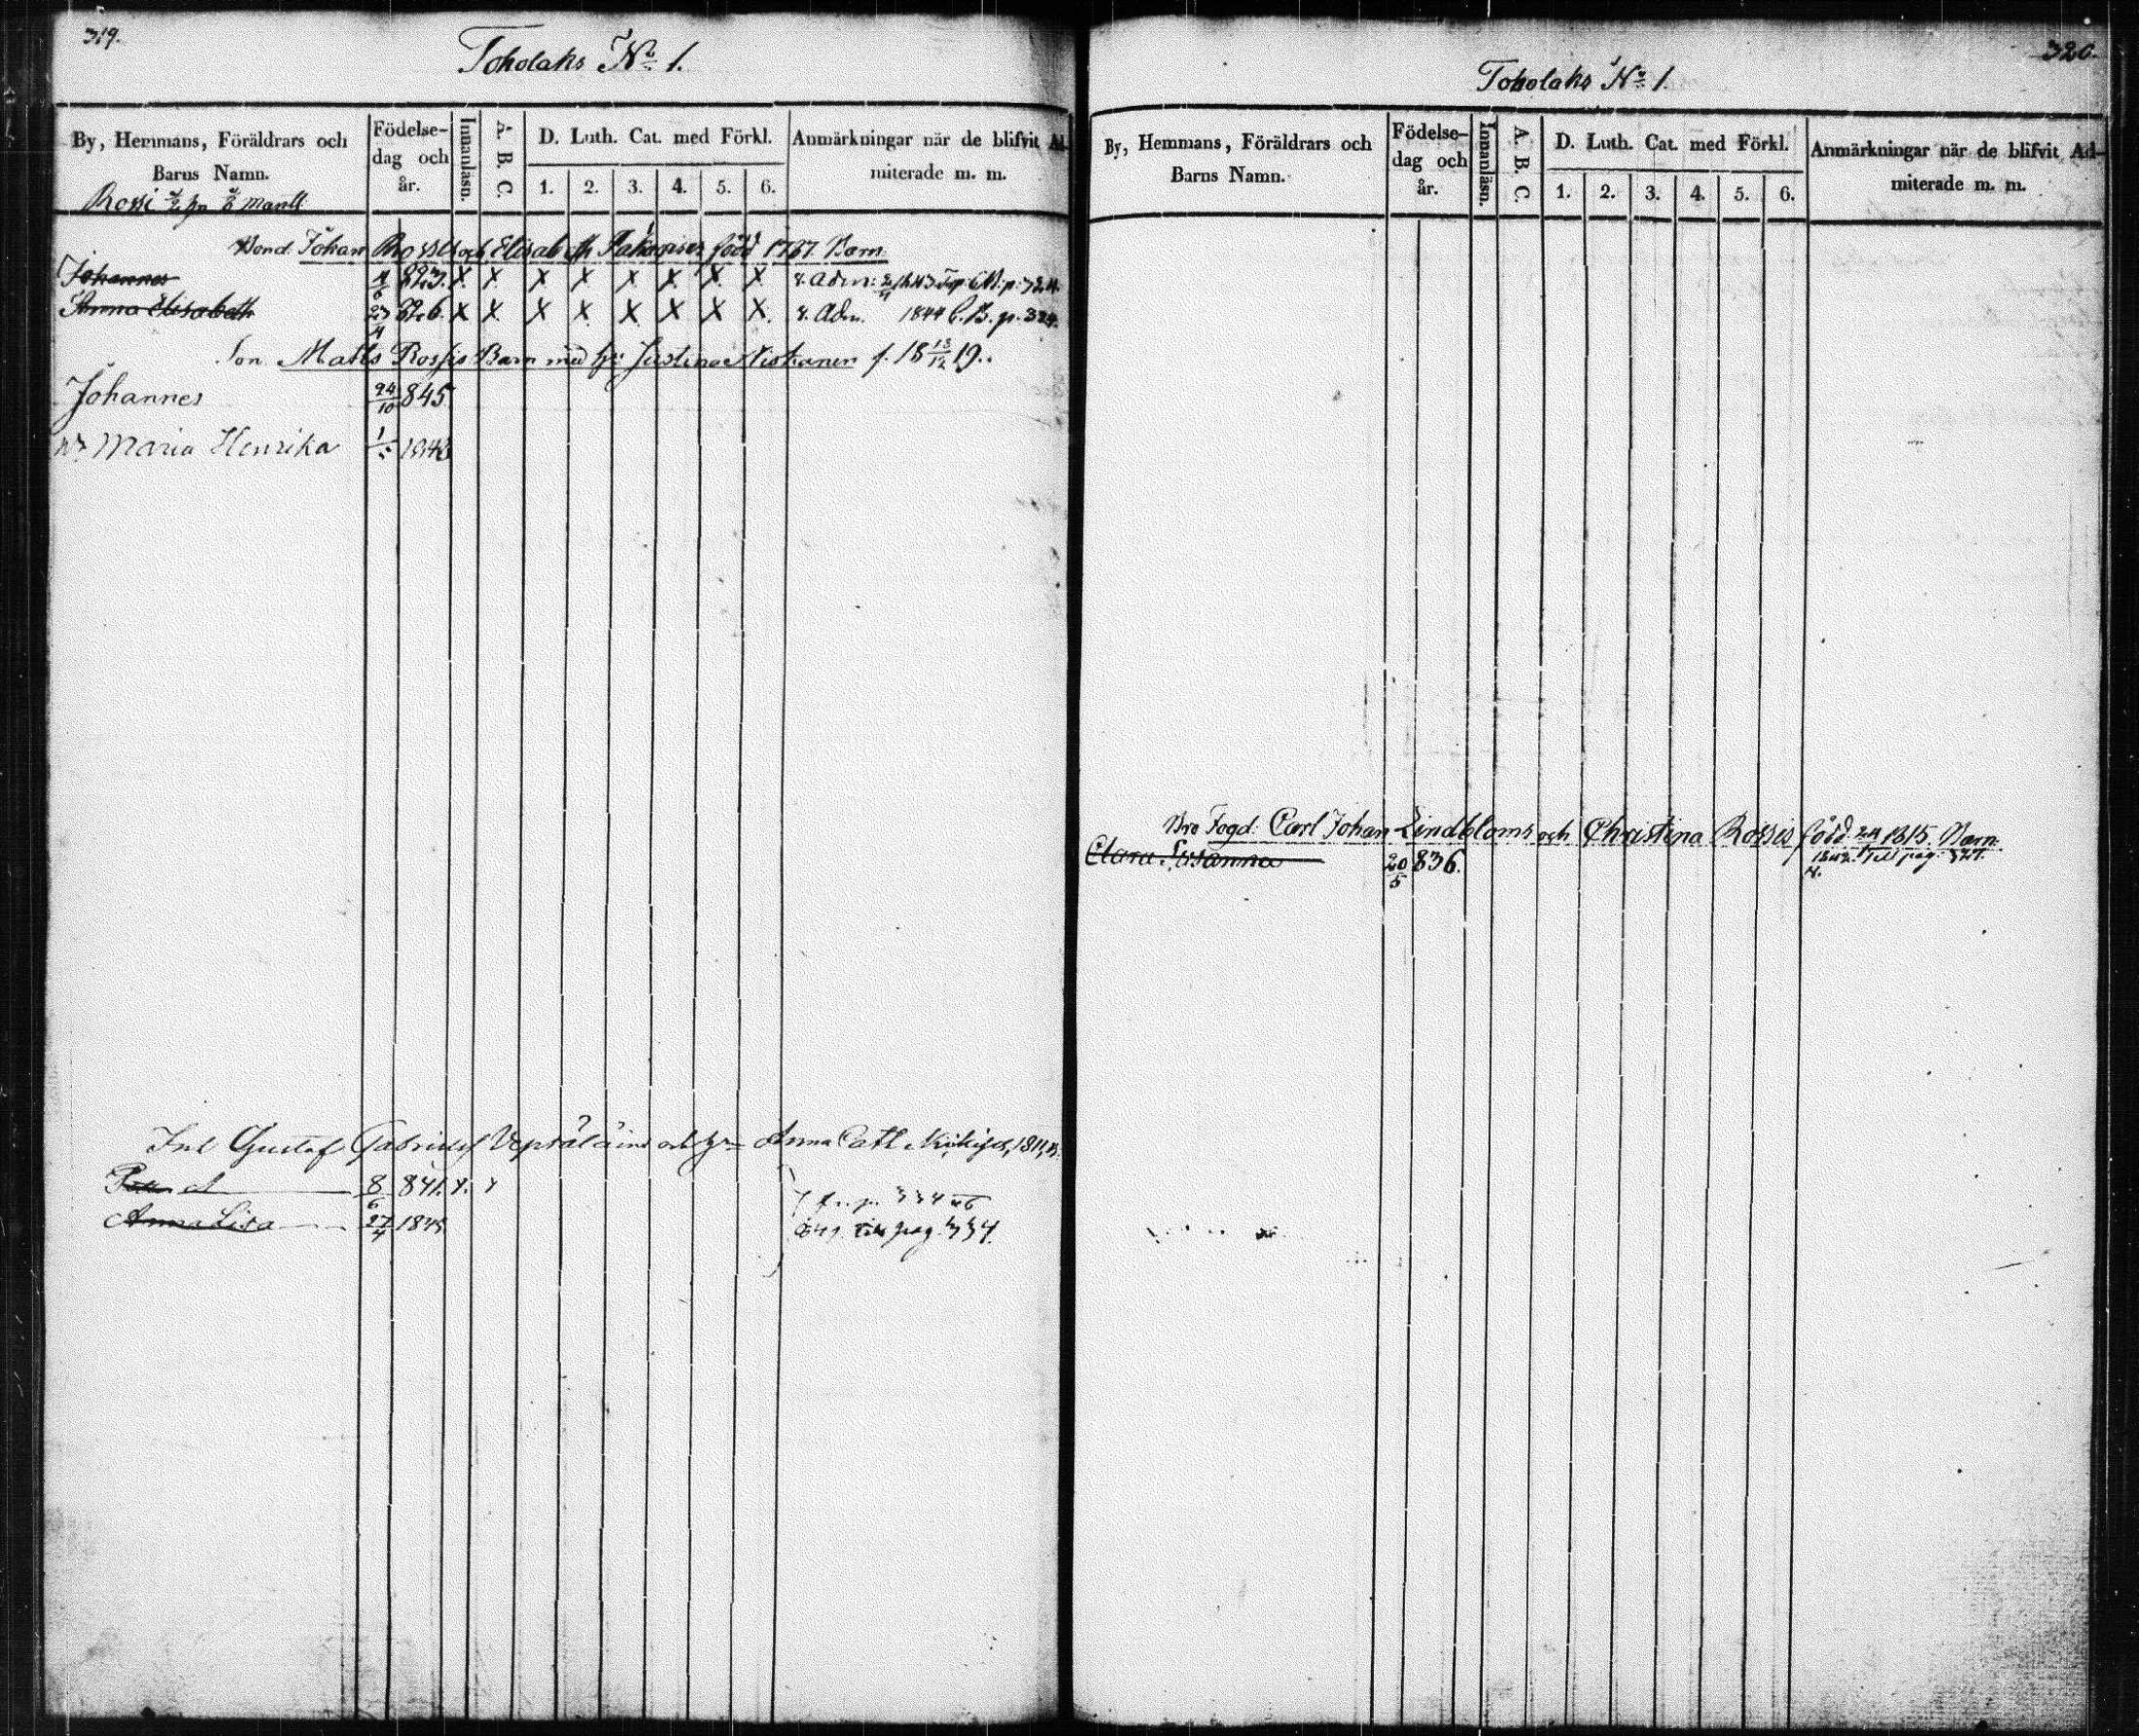 319.
Toholaks No 1.
By, Hemmans, Föräldrars och Barns Namn.
Födelse-dag och år.
Innanläsn.
A. B. C.
D. Luth. Cat. med Förkl.
1. 2. 3. 4. 5. 6.
Anmärkningar när de blifvit Admiterade m. m.
Rossi mantl
Bond. Johan Rossis och Elisabeth född 1787. Barn
Johannes 823. X X X X X X X X Adm: 1843
Anna Elisabeth 23/4 826. X X X X X X X X Adm. 1844 C. B. p. 324.
Son Matts Rossis Barn med hu Justina f. 18 13/12 19.
Johannes 24/10 845
Maria Henrika 1848
Inh Gustaf Gabrielss Vepsäläins och hu Anna Cath 1811,
8/6 841. x. x
Anna Lisa 27/4 1845
p. 334
till pag. 334.
320.
Toholaks No 1.
By, Hemmans, Föräldrars och Barns Namn.
Födelse-dag och år.
Innanläsn.
A. B. C.
D. Luth. Cat. med Förkl.
1. 2. 3. 4. 5. 6.
Anmärkningar när de blifvit Admiterade m. m.
Bro Fogd: Carl Johan Lindbloms och Christina Rossis född 1815. Barn.
Clara Susanna 20/5 836. Till pag: 327.